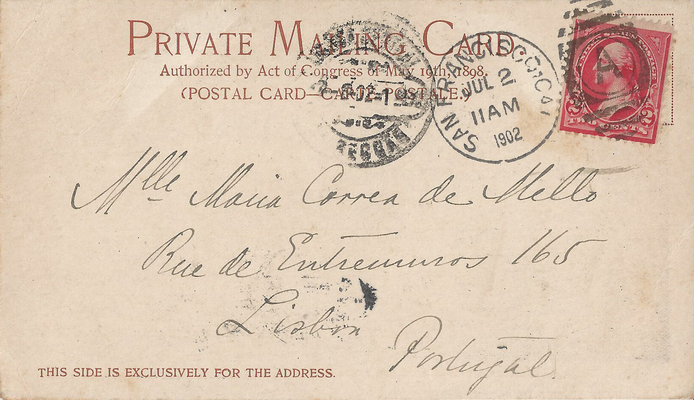 PRIVATE MAILING CARD.
Authorized by Act of Congress of May 19th, 1898.
(POSTAL CARD—CARTE POSTALE.)
SAN FRANCISCO, CAL
JUL 2
11 AM
1902
TWO CENTS
2 2
Mlle Maria Correa de Mello
Rue de Entremuros 165
Lisbon
Portugal.
THIS SIDE IS EXCLUSIVELY FOR THE ADDRESS.